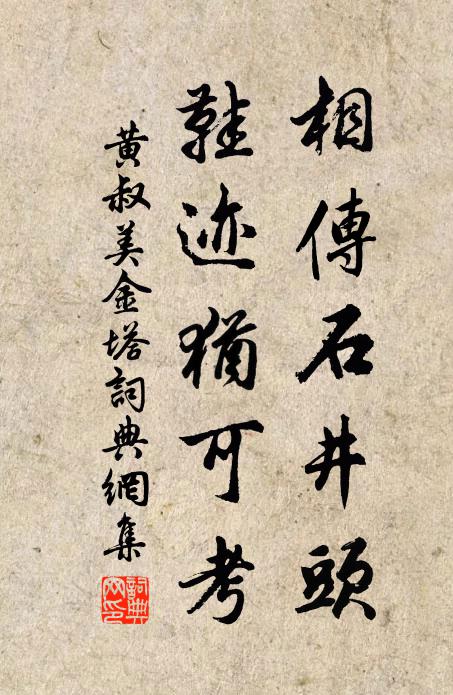 相傳石井頭
鞋迹猶可考
黃叔美金塔詞典網集
詞典网印